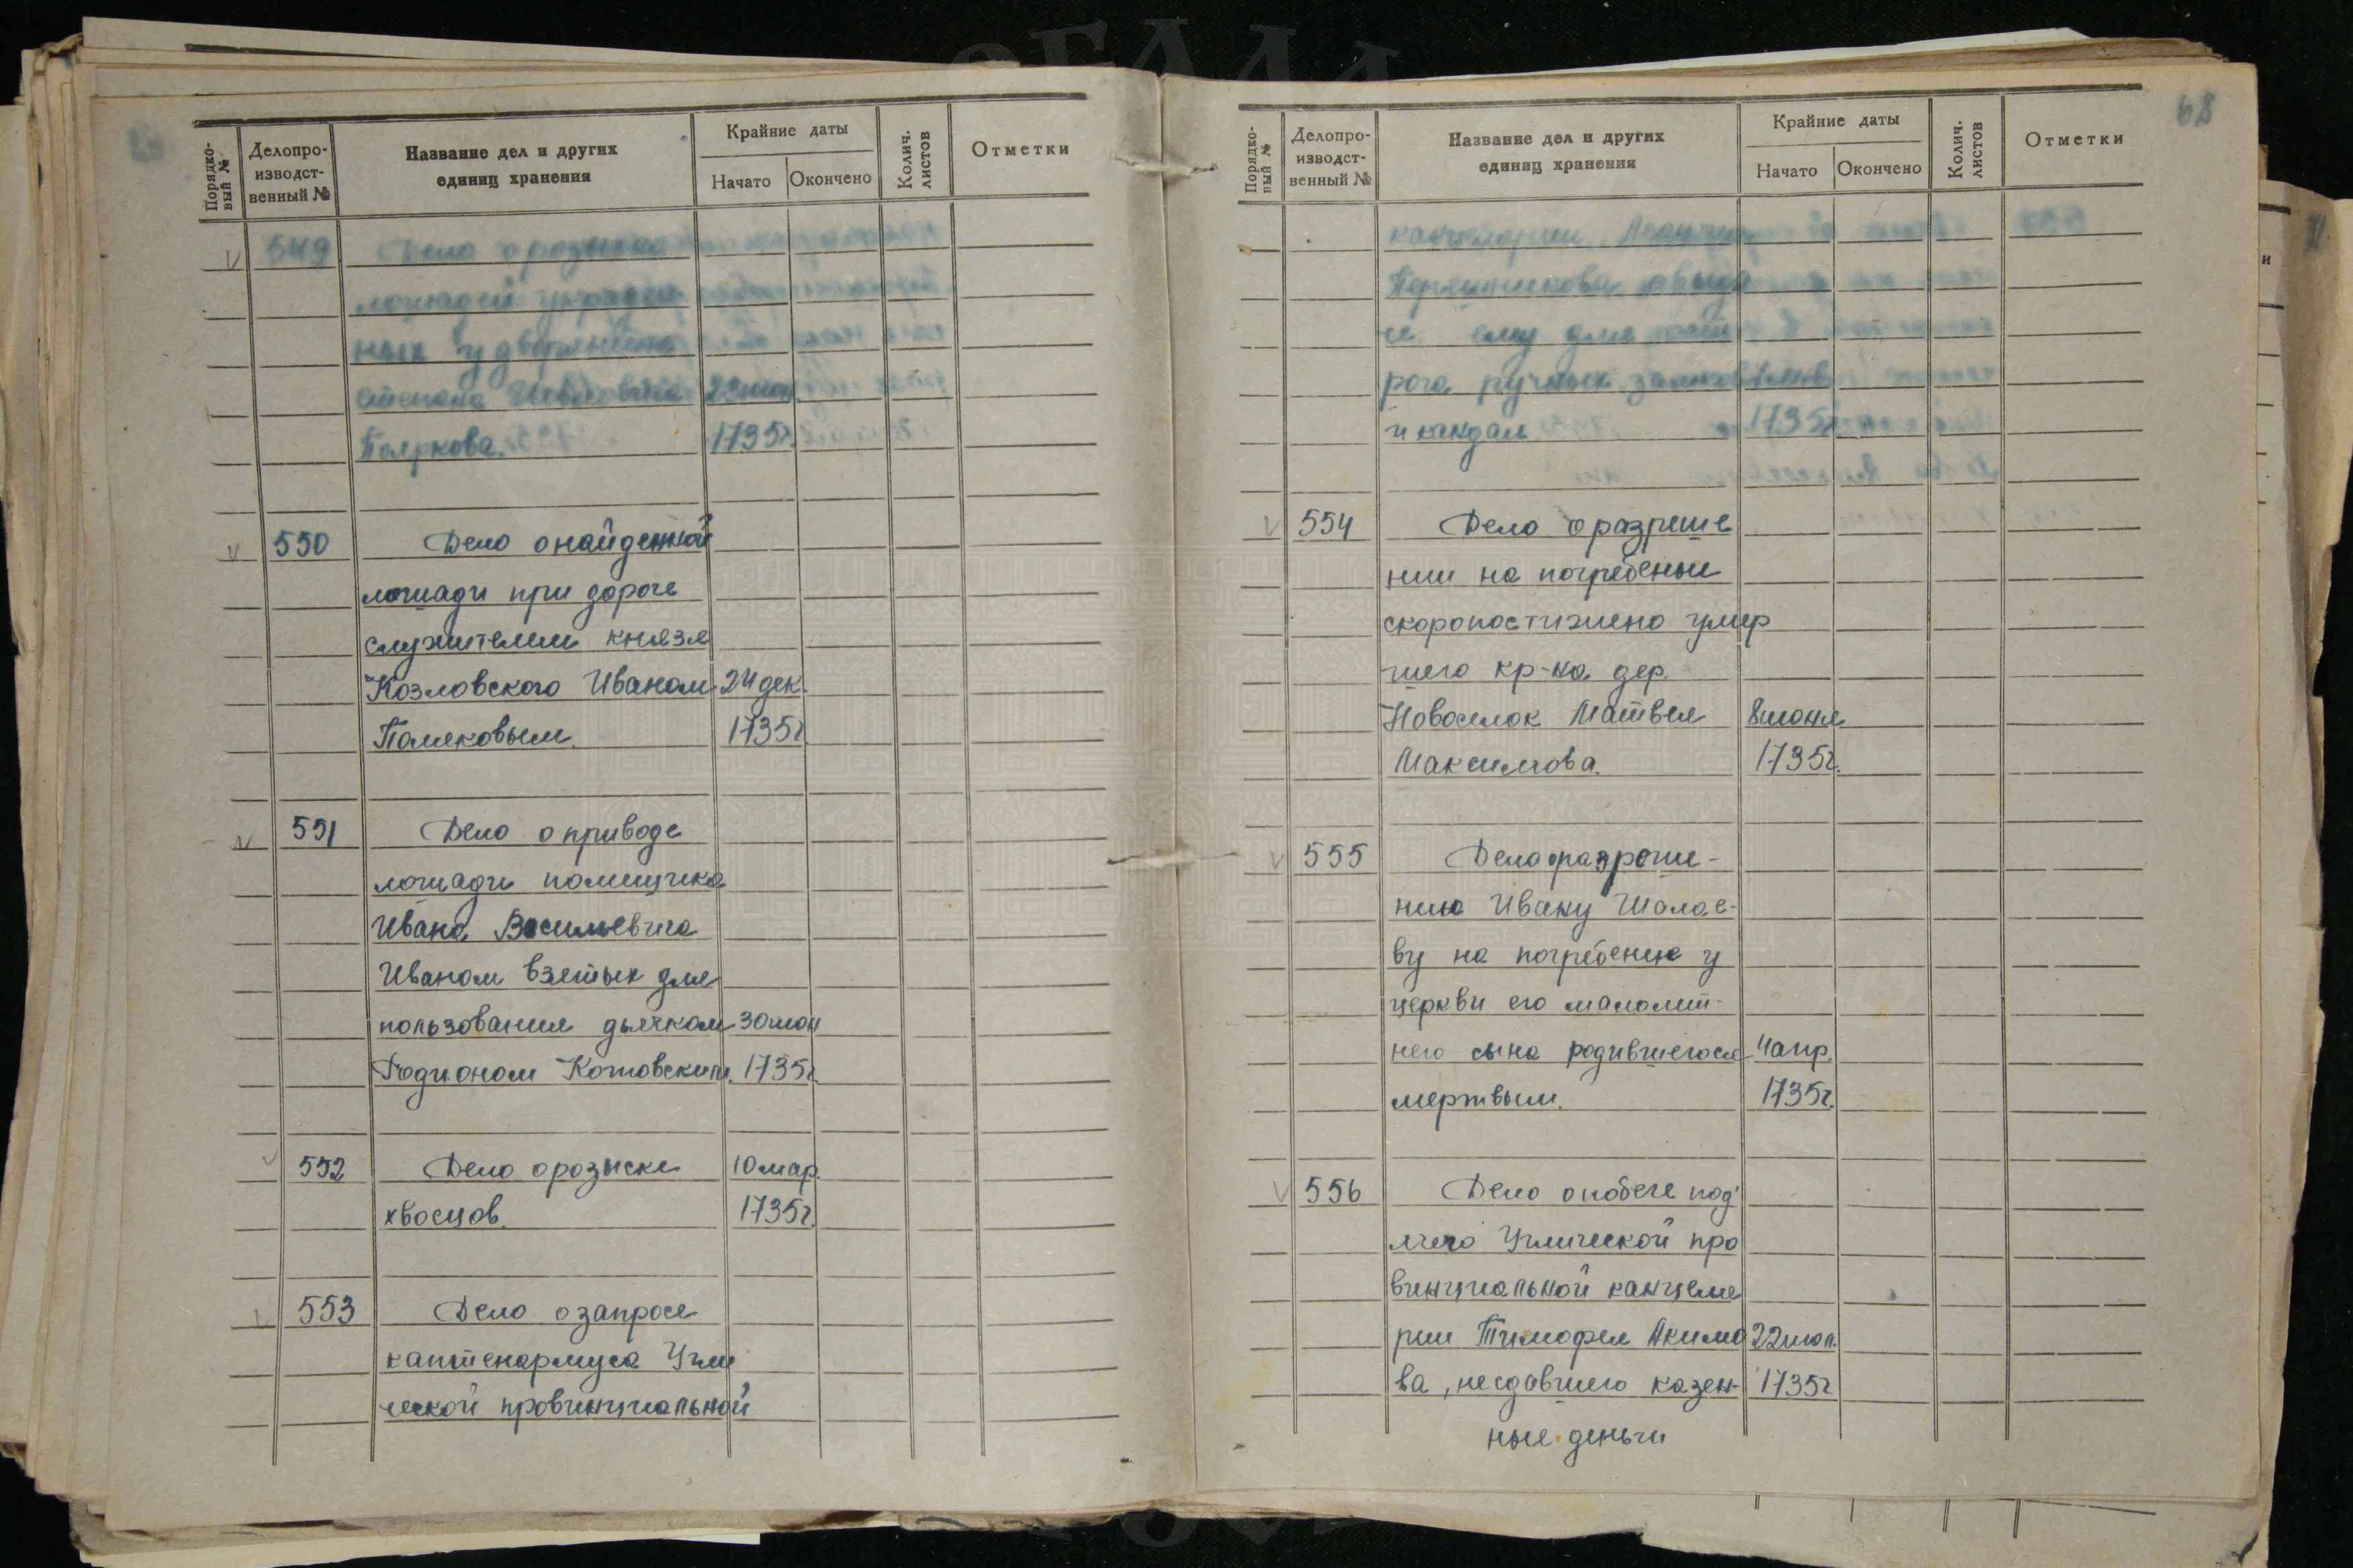 Порядко-
вый №
Делопро-
изводст-
венный №
Название дел и других
единиц хранения
Крайние даты
Начато
Окончено
Колич.
листов
Отметки
549 Дело о розыске
лошадей украден
ных у дворянина
Степана 23
Пояркова. 1735г.
550 Дело о найденной
лошади при дороге
служителем князя
Козловского Иваном 24 дек.
Поляковым. 1735г
551 Дело о приводе
лошади помещика
Ивана Васильевича
Иваном взятых для
пользования дьячком 30 июн
Родионом Котовским. 1735г.
552 Дело о розыске 10 мар.
хвосцов. 1735г.
553 Дело о запросе
каптенармуса Угли
ческой провинциальной
68
Порядко-
вый №
Делопро-
изводст-
венный №
Название дел и других
единиц хранения
Крайние даты
Начато
Окончено
Колич.
листов
Отметки
канцелярии
Перешникова о выда
че ему для
рога ручных
и кандал 1735г
554 Дело о разреше
нии на погребеньи
скоропостижено умер
шего кр-на дер.
Новоселок Матвея 8 июня
Максимова. 1735г.
555 Дело о разреше-
нию Ивану Шалае-
ву на погребение у
церкви его малолет-
него сына родившегося 4 апр.
мертвым. 1735г.
556 Дело о побеге под'
ячего Углической про
винциальной канцеля
рии Тимофея Акимо 22 июл.
ва, несдавшего казен- 1735г
ные деньги